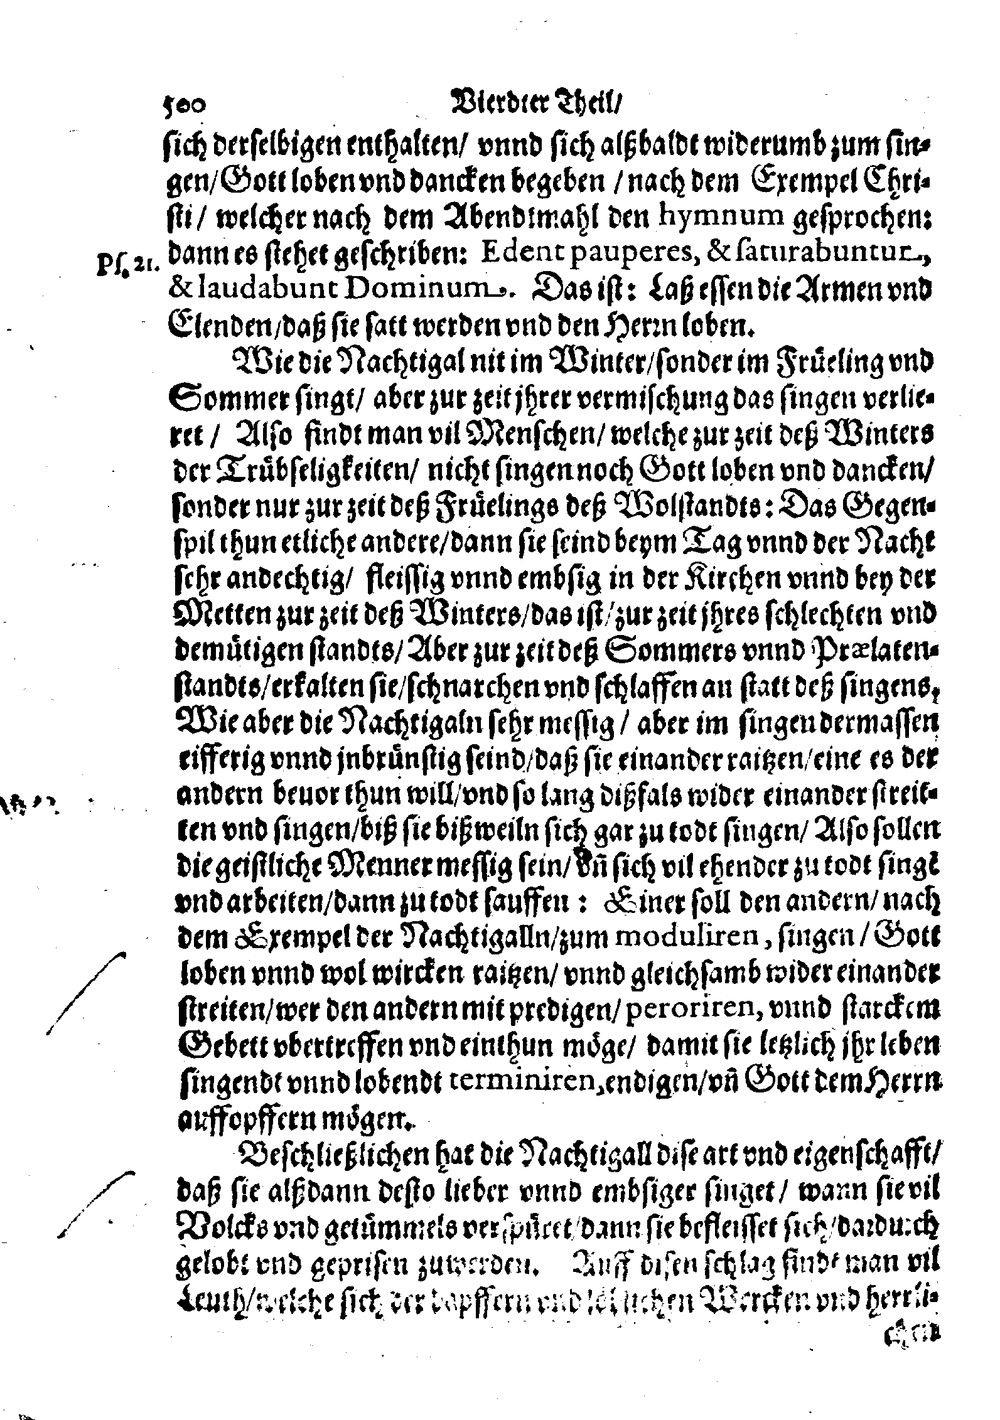 500 Vierdter Theil/
sich derselbigen enthalten/ vnnd sich alßbaldt widerumb zum sin-
gen/ Gott loben vnd dancken begeben / nach dem Exempel Chri-
sti/ welcher nach dem Abendtmahl den hymnum gesprochen:
Ps. 21. dann es stehet geschriben: Edent pauperes, & saturabuntur,
& laudabunt Dominum. Das ist: Laß essen die Armen vnd
Elenden/ daß sie satt werden vnd den Herrn loben.
Wie die Nachtigal nit im Winter/ sonder im Früeling vnd
Sommer singt/ aber zur zeit jhrer vermischung das singen verlie-
ret / Also findt man vil Menschen/ welche zur zeit deß Winters
der Trübseligkeiten/ nicht singen noch Gott loben vnd dancken/
sonder nur zur zeit deß Früelings deß Wolstandts: Das Gegen-
spil thun etliche andere/ dann sie seind beym Tag vnnd der Nacht
sehr andechtig/ fleissig vnnd embsig in der Kirchen vnnd bey der
Metten zur zeit deß Winters/ das ist/ zur zeit jhres schlechten vnd
demütigen standts/ Aber zur zeit deß Sommers vnnd Prælaten-
standts/ erkalten sie/ schnarchen vnd schlaffen an statt deß singens,
Wie aber die Nachtigaln sehr messig / aber im singen dermassen
eifferig vnnd jnbrünstig seind/ daß sie einander raitzen/ eine es der
andern beuor thun will/ vnd so lang dißfals wider einander streit-
ten vnd singen/ biß sie bißweiln sich gar zu todt singen/ Also sollen
die geistliche Menner messig sein/ vñ sich vil ehender zu todt singē
vnd arbeiten/ dann zu todt sauffen : Einer soll den andern/ nach
dem Exempel der Nachtigalln/ zum moduliren, singen / Gott
loben vnnd wol wircken raitzen/ vnnd gleichsamb wider einander
streiten/ wer den andern mit predigen/ peroriren, vnnd starckem
Gebett vbertreffen vnd einthun möge/ damit sie letzlich jhr leben
singendt vnnd lobendt terminiren, endigen/ vñ Gott dem Herrn
auffopffern mögen.
Beschließlichen hat die Nachtigall dise art vnd eigenschafft/
daß sie alßdann desto lieber vnnd embsiger singet/ wann sie vil
Volcks vnd getümmels verspüret/ dann sie befleisset sich/ dardurch
gelobt vnd geprisen zuwerden. Auff disen schlag findt man vil
Leuth/ welche sich der dapffern vnd löblichen Wercken vnd herrli-
chen